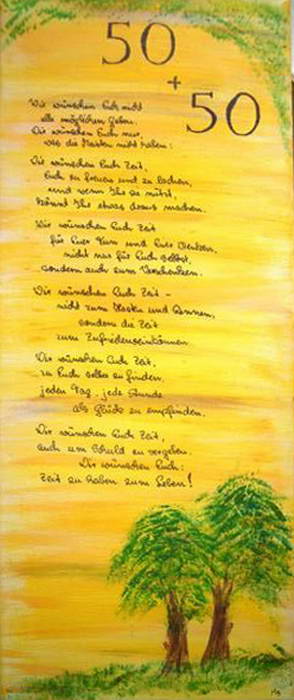 50
+
50
Wir wünschen Euch nicht
alle möglichen Gaben.
Wir wünschen Euch nur,
was die Meisten nicht haben:
Wir wünschen Euch Zeit,
Euch zu freuen und zu lachen,
und wenn Ihr sie nützt,
könnt Ihr etwas daraus machen.
Wir wünschen Euch Zeit
für Euer Tun und Euer Denken,
nicht nur für Euch selbst,
sondern auch zum Verschenken.
Wir wünschen Euch Zeit –
nicht zum Hasten und Rennen,
sondern die Zeit
zum Zufriedenseinkönnen.
Wir wünschen Euch Zeit,
zu Euch selbst zu finden,
jeden Tag, jede Stunde
als Glück zu empfinden.
Wir wünschen Euch Zeit,
auch um Schuld zu vergeben.
Wir wünschen Euch:
Zeit zu haben zum Leben!